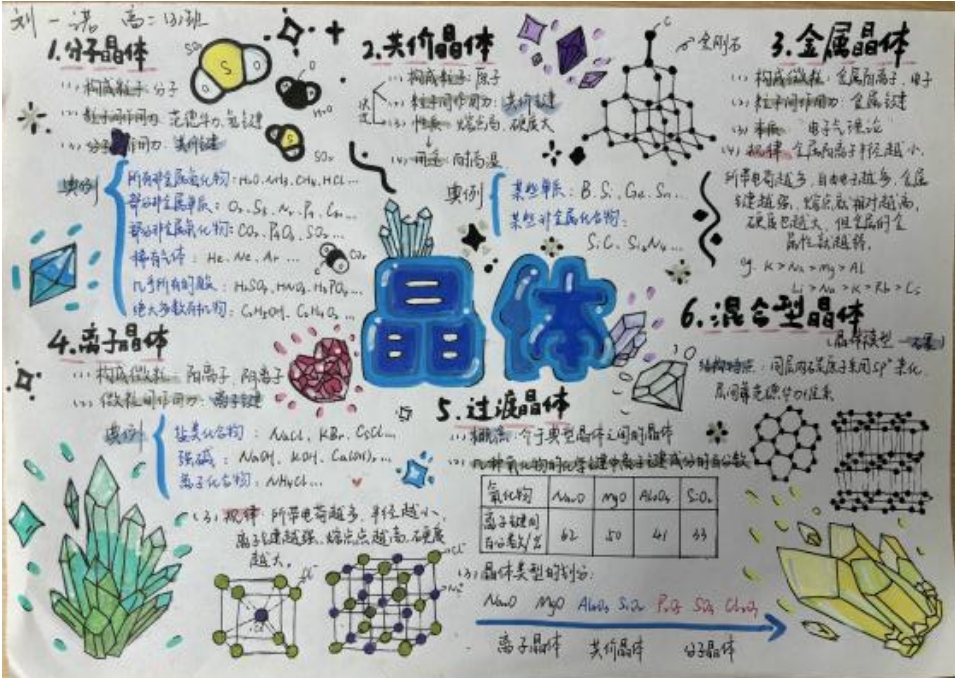 刘一诺 高二(3)班
1.分子晶体
(1)构成粒子:分子
(2)粒子间作用力:范德华力、氢键
(3)分子内作用力:共价键
典例
所有非金属氢化物:H₂O、NH₃、CH₄、HCl...
部分非金属单质:
部分非金属氧化物:CO₂、
稀有气体:He、Ne、Ar...
几乎所有的酸:H₂SO₄、HNO₃、H₃PO₄...
绝大多数有机物:
SO₃
S
O
O
H₂O
S
SO₂
CO₂
2.共价晶体
(1)构成粒子:原子
(2)粒子间作用力:共价键
(3)性质:熔点高、硬度大
(4)用途:耐高温
典例
某些单质:B、Si、Ge、Sn...
某些非金属化合物:
SiC、Si₃N₄...
C
金刚石
3.金属晶体
(1)构成微粒:金属阳离子、电子
(2)粒子间作用力:金属键
(3)本质:"电子气理论"
(4)规律:金属阳离子半径越小,
所带电荷越多,自由电子越多,金属
键越强,熔点就相对越高,
硬度也越大,但金属的金
属性就越弱。
eg. K>Na>Mg>Al
Li>Na>K>Rb>Cs
晶体
4.离子晶体
(1)构成微粒:阳离子、阴离子
(2)微粒间作用力:离子键
典例
盐类化合物:NaCl、KBr、CsCl...
强碱:NaOH、KOH、Ca(OH)₂...
离子化合物:NH₄Cl...
(3)规律:所带电荷越多、半径越小、
离子键越强、熔沸点越高、硬度
越大。
Cl⁻
Cl⁻
Na⁺
5.过渡晶体
(1)概念:介于典型晶体之间的晶体
(2)几种氧化物的化学键中离子键成分的百分数
氧化物 Na₂O MgO Al₂O₃ SiO₂
离子键的百分数/% 62 50 41 33
(3)晶体类型的划分:
Na₂O MgO Al₂O₃ SiO₂ P₂O₅ SO₃ Cl₂O₇
离子晶体 共价晶体 分子晶体
6.混合型晶体
(晶体模型—石墨)
结构特点:同层内碳原子采用sp²杂化,
层间靠范德华力维系